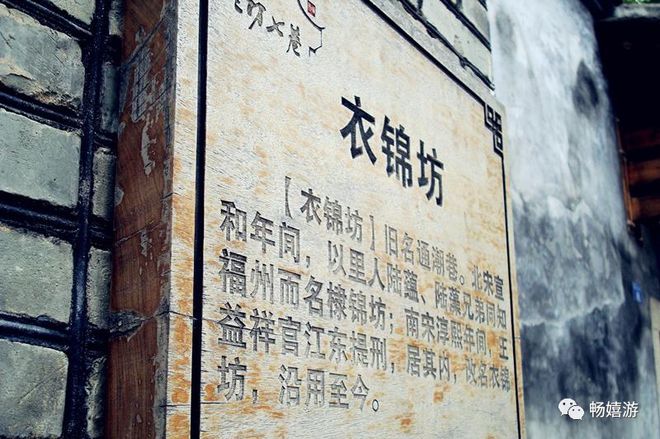 坊七巷
衣锦坊
【衣锦坊】旧名通潮巷。北宋宣
和年间，以里人陆蕴、陆藻兄弟同知
福州而名棣锦坊；南宋淳熙年间，王
益祥官江东提刑，居其内，改名衣锦
坊，沿用至今。
畅嬉游